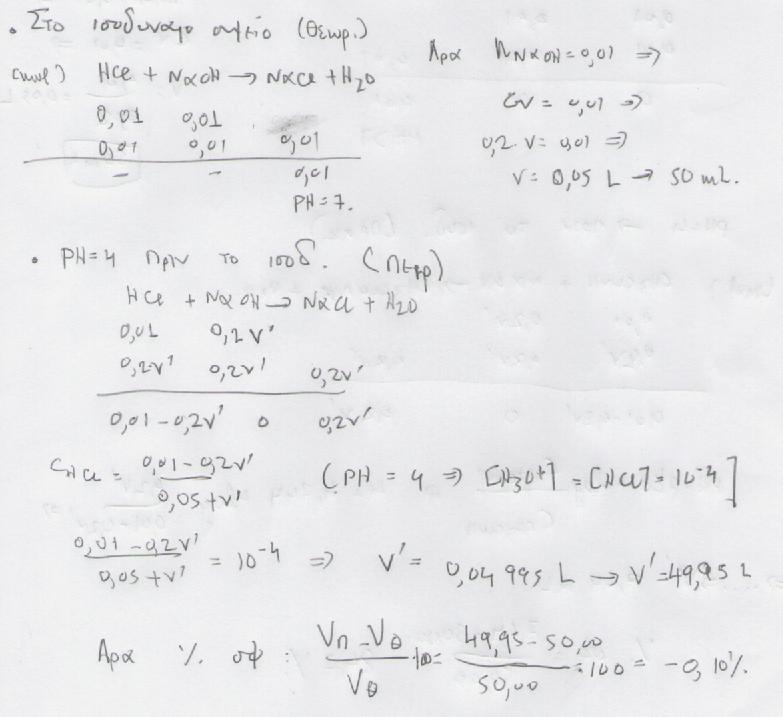 • Στο ισοδυναμο σημείο (Θεωρ.)
(mol) HCl + NaOH → NaCl + H2O
0,01 0,01
0,01 0,01 0,01
– – 0,01
PH = 7.
Άρα nNaOH = 0,01 ⇒
CV = 0,01 ⇒
0,2 · V = 0,01 ⇒
V = 0,05 L → 50 mL.
• PH = 4 πριν το ισοδ. (πειρ)
HCl + NaOH → NaCl + H2O
0,01 0,2V'
0,2V' 0,2V' 0,2V'
0,01 - 0,2V' 0 0,2V'
CHCl = (0,01 - 0,2V') / (0,05 + V') (PH = 4 ⇒ [H3O+] = [HCl] = 10-4]
(0,01 - 0,2V') / (0,05 + V') = 10-4 ⇒ V' = 0,04995 L → V' = 49,95 L
Άρα % σφ : (Vπ - Vθ) / Vθ 100 = (49,95 - 50,00) / 50,00 · 100 = -0,10%.